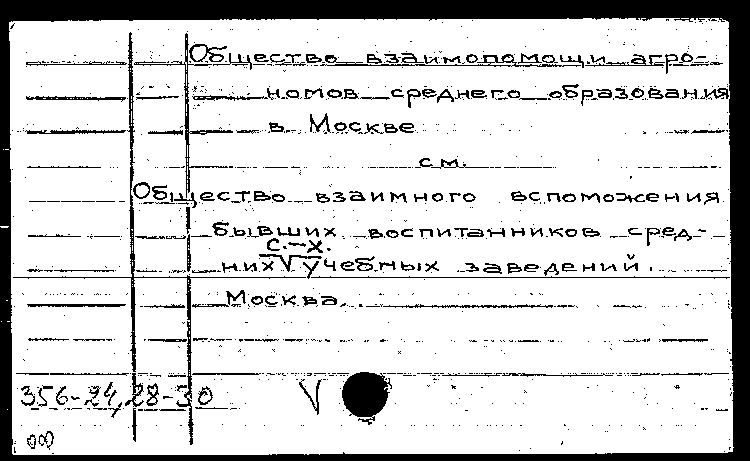 Общество взаимопомощи агро-
номов среднего образования
в Москве
см.
Общество взаимного вспоможения
бывших воспитанников сред-
с.-х.
них √ учебных заведений.
Москва.
356-24,28-30 V